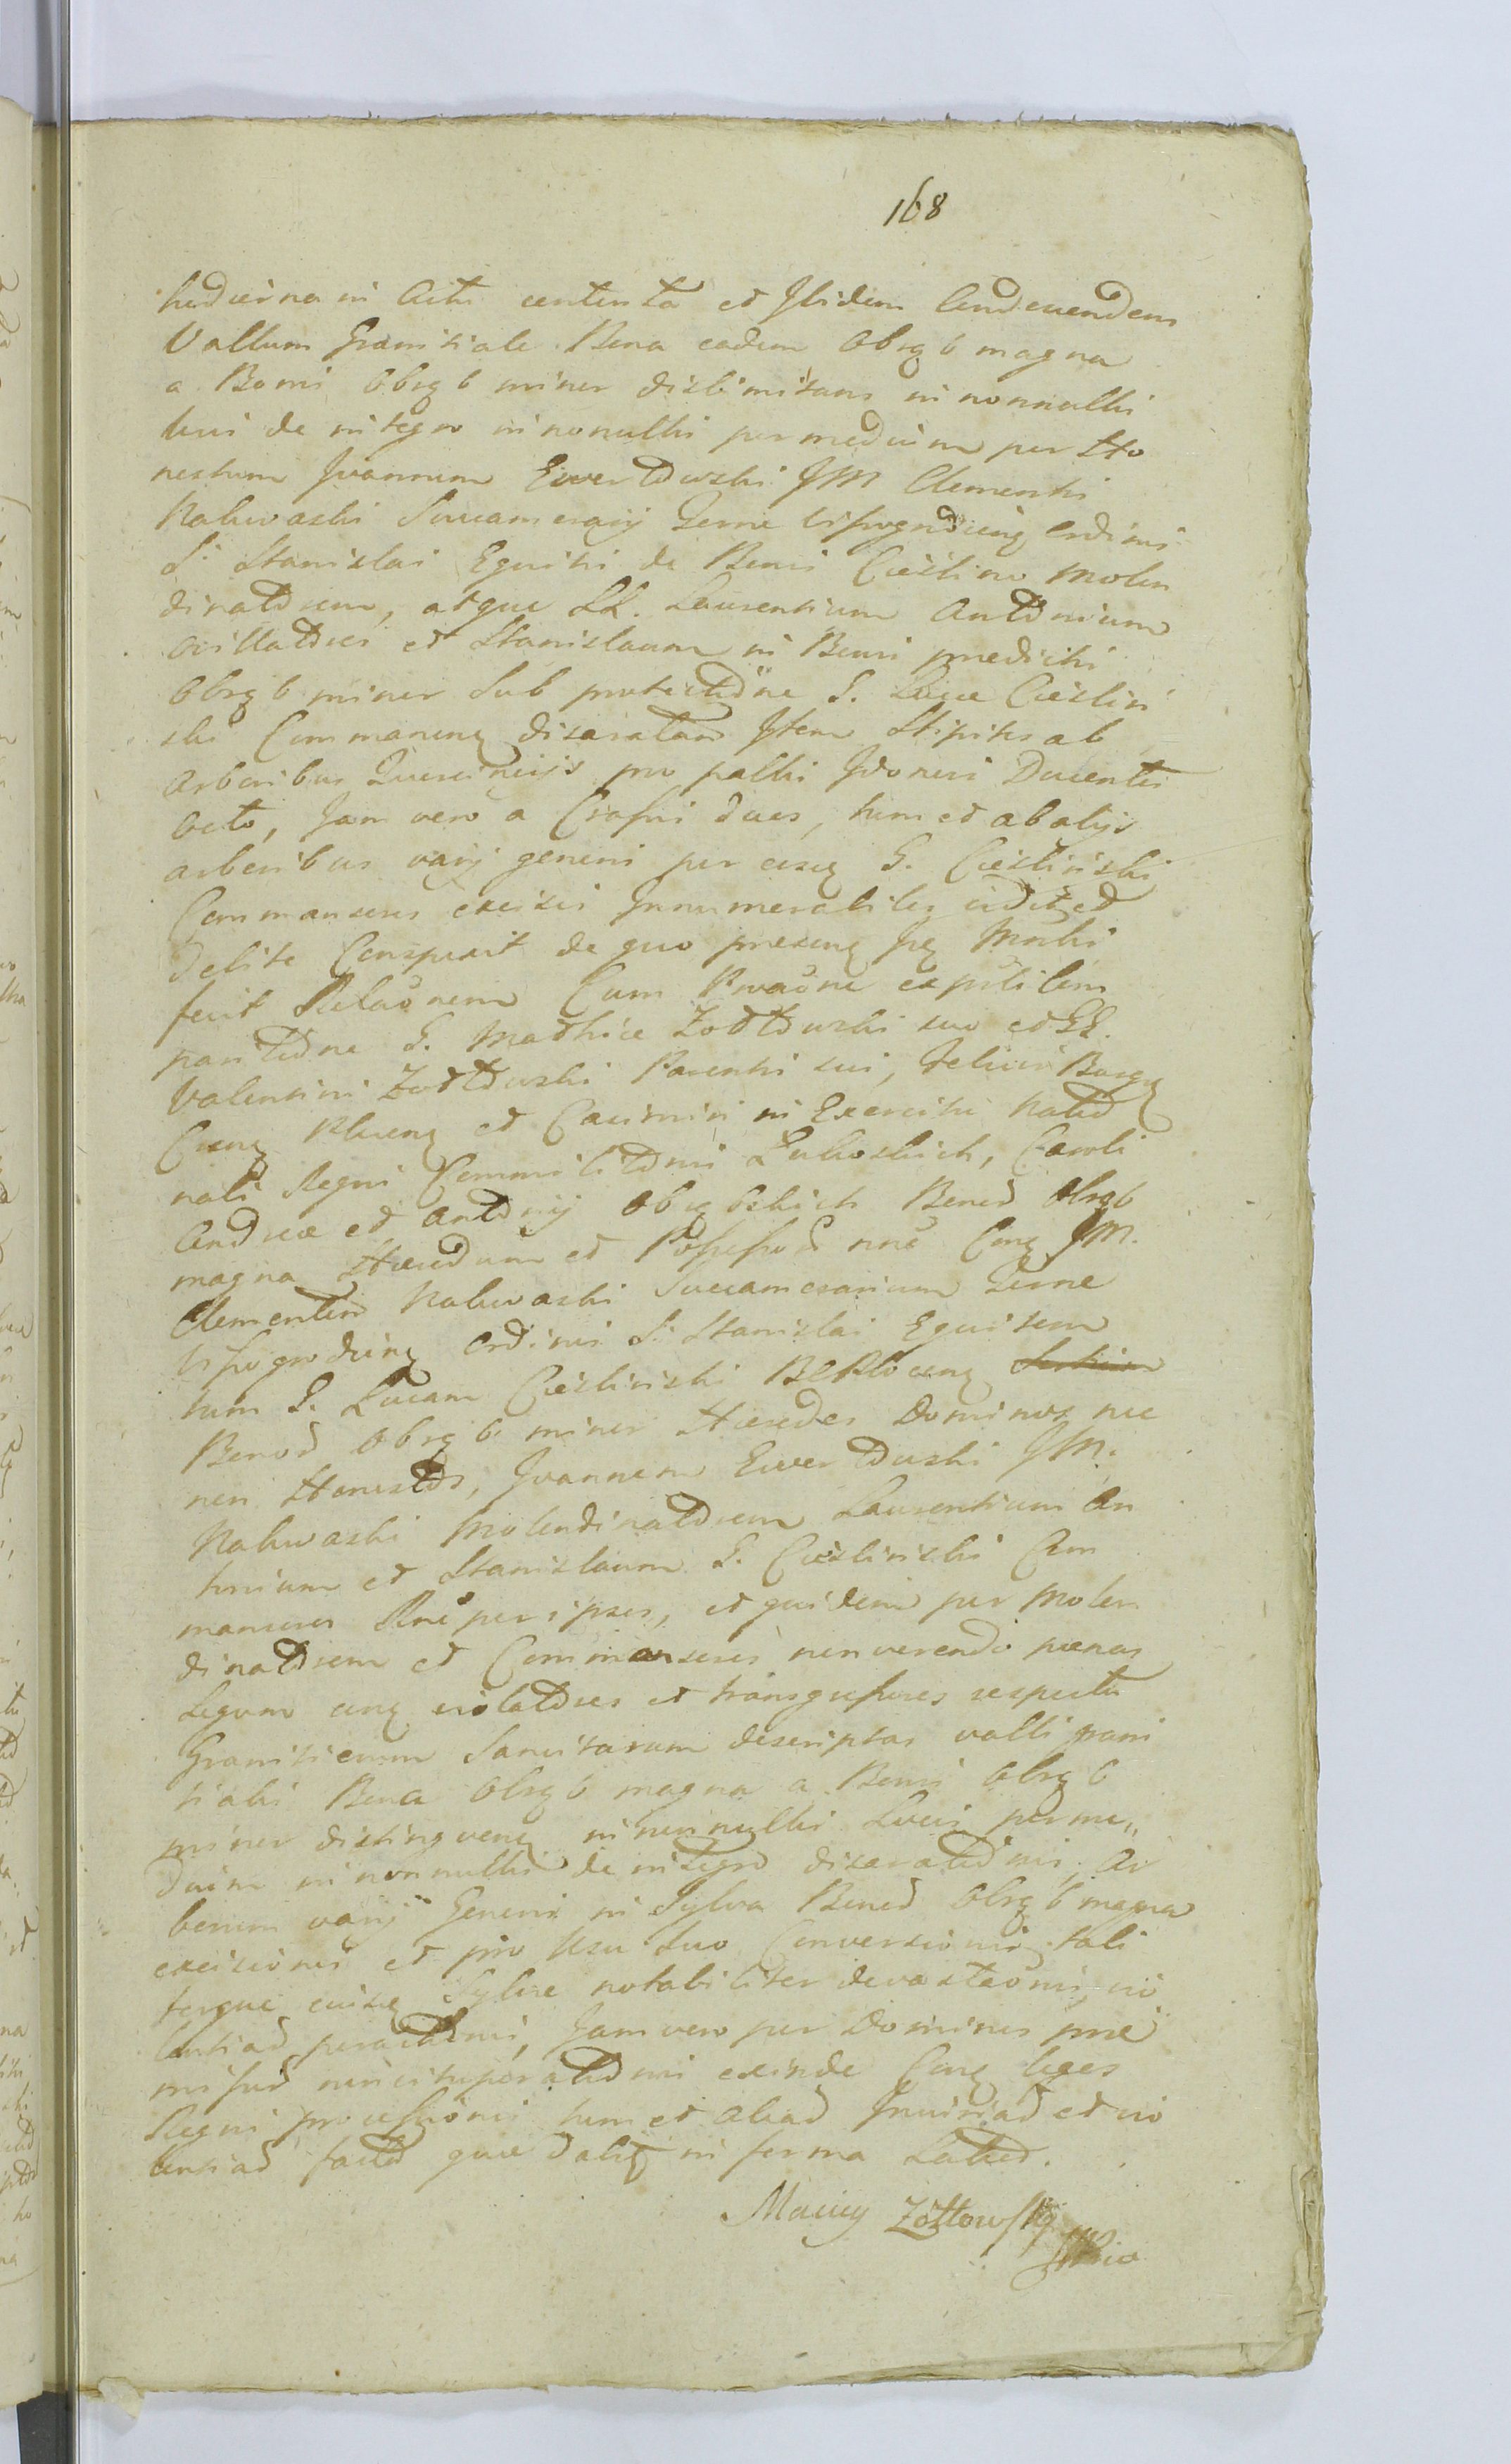 168
hodierna in Actu contenta et Ibidem Conducendum
Vallum Granitiale Bona eadem Obręb magna
a Bonis Obręb minor dislimitans in nonnullis
locis de integro in nonullis per medium per Ho
nestum Joannem Ewertowski JM Clementis
Nakwaski Succamerarij Terrae Wissogrodieng Ordinis
S. Stanislai Equitis de Bonis Cieslino Molen
dinatorem, atque LL. Laurentium Antonium
et Stanislaum in Bonis praedictis
Obręb minor Sub protectione G. Lucae Cieslin
ski Commanenę disaratum Item Stipites ab
Arboribus Quercineijs pro pallis Idoneis Ducentis
Octo, Jam vero a Crassis duos, tum et ab alijs
arboribus varij generis per eosę G. Cieslinski
Commansores excisis Innumerabiles vidit et
Delite Conspexit de quo praesenę Ię Mnstri
fecit Relaõnem Cum
paritione G. Mathiae Zołtowski suo et GG.
Valentini Zołtowski Parentis sui, Felicis Burg
Crenę Plocenę et Casimiri in Exercitu Natio
nali Regni Commilitonis Lukoskich, Caroli
Andreae et Antonij Obrębskich Bonor Obręb
magna Haeredum et Possessor nñe Conę JM.
Clementem Nakwaski Succamerarium Terrae
Wissogrodienę Ordinis S. Stanislai Equitem
tum G. Lucam Cieslinski BGPlocenę
Bonor Obręb minor Haeredes Dominos nec
non Honestos, Joannem Ewertowski JM.
Nakwaski Molendinatorem Laurentium An
tonium et Stanislaum G. Cieslinski Com
mansores Rñe per ipsos, et quidem per Molen
dinatorem et Commansores non verendo poenas
Legum conę violatores et transgressores respectu
Graniticeum Sancitarum descriptas valli grani
tialis Bona Obręb magna a Bonis Obręb
minor distingvenę in nonnullis Locis per me„
dium in nonnullis de integro disarationis, Ar
borum varij Generis in Sylva Bonor Obręb magna
excisionis et pro usu suo Conversionis tali
terque eiusę Sylvae notabiliter devastaõnis, vio
lentiar peractionis, Jam vero per Dominos prae
missor exinde Conę leges
Regni processionis tum et aliar Iniuriar et vio
lentiar factor quae datis in forma Lator.
Maciey Zółtowski